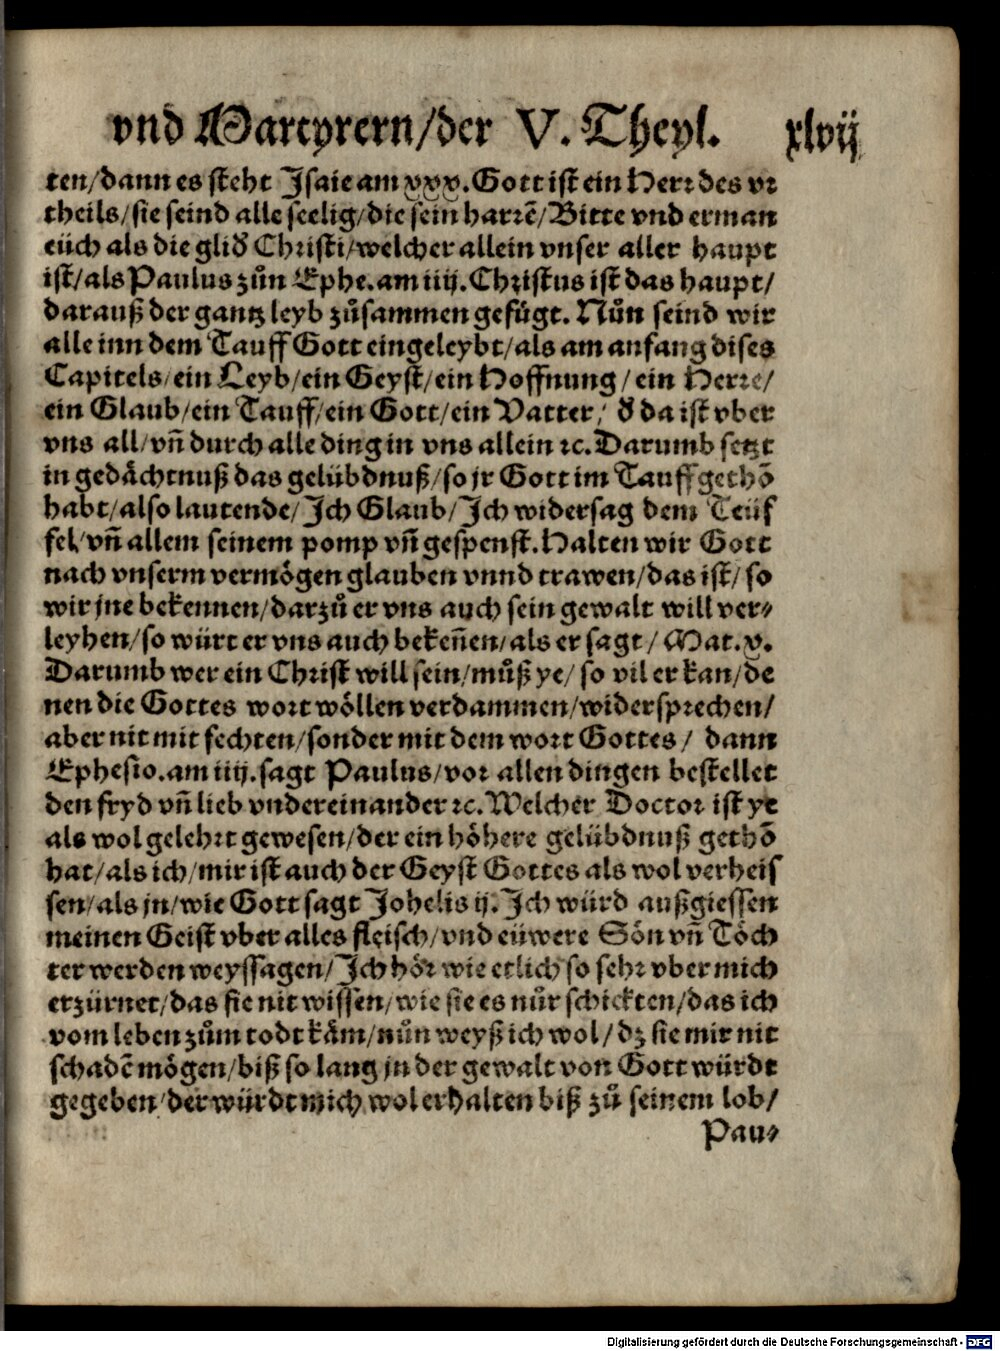 vnd Martyrern/der V. Theyl. xlvij
ten/dann es steht Jsaie am xxx. Gott ist ein Herr des vr
theils/sie seind alle seelig/die sein harrẽ/Bitte vnd erman
eüch als die glið Christi/welcher allein vnser aller haupt
ist/als Paulus zůn Ephe. am iiij. Christus ist das haupt/
darauß der gantz leyb zůsammen gefůgt. Nůn seind wir
alle inn dem Tauff Gott eingeleybt/als am anfang dises
Capitels/ein Leyb/ein Geyst/ein Hoffnung/ein Herre/
ein Glaub/ein Tauff/ein Gott/ein Vatter/ð da ist vber
vns all/vñ durch alle ding in vns allein ꝛc. Darumb setzt
in gedåchtnuß das gelübdnuß/so jr Gott im Tauff gethõ
habt/also lautende/Jch Glaub/Jch widersag dem Teüf
fel/vñ allem seinem pomp vñ gespenst. Halten wir Gott
nach vnserm vermögen glauben vnnd trawen/das ist/so
wir jne bekennen/darzů er vns auch sein gewalt will ver⸗
leyhen/so würt er vns auch bekeñen/als er sagt/Mat. x.
Darumb wer ein Christ will sein/můß ye/so vil er kan/de
nen die Gottes wort wöllen verdammen/widersprechen/
aber nit mit fechten/sonder mit dem wort Gottes/dann
Ephesio. am iiij. sagt Paulus/vor allen dingen bestellet
den fryd vñ lieb vndereinander ꝛc. Welcher Doctor ist ye
als wol gelehrt gewesen/der ein höhere gelübdnuß gethõ
hat/als ich/mir ist auch der Geyst Gottes als wol verheis
sen/als jn/wie Gott sagt Johelis ij. Jch würd außgiessen
meinen Geist vber alles fleisch/vnd eüwere Sön vñ Töch
ter werden weyssagen/Jch hör wie etlich so sehr vber mich
erzürnet/das sie nit wissen/wie sie es nůr schickten/das ich
vom leben zům todt kåm/nůn weyß ich wol/dz sie mir nit
schadẽ mögen/biß so lang jn der gewalt von Gott würdt
gegeben/der würdt mich wol erhalten biß zů seinem lob/
Pau⸗
Digitalisierung gefördert durch die Deutsche Forschungsgemeinschaft - DFG